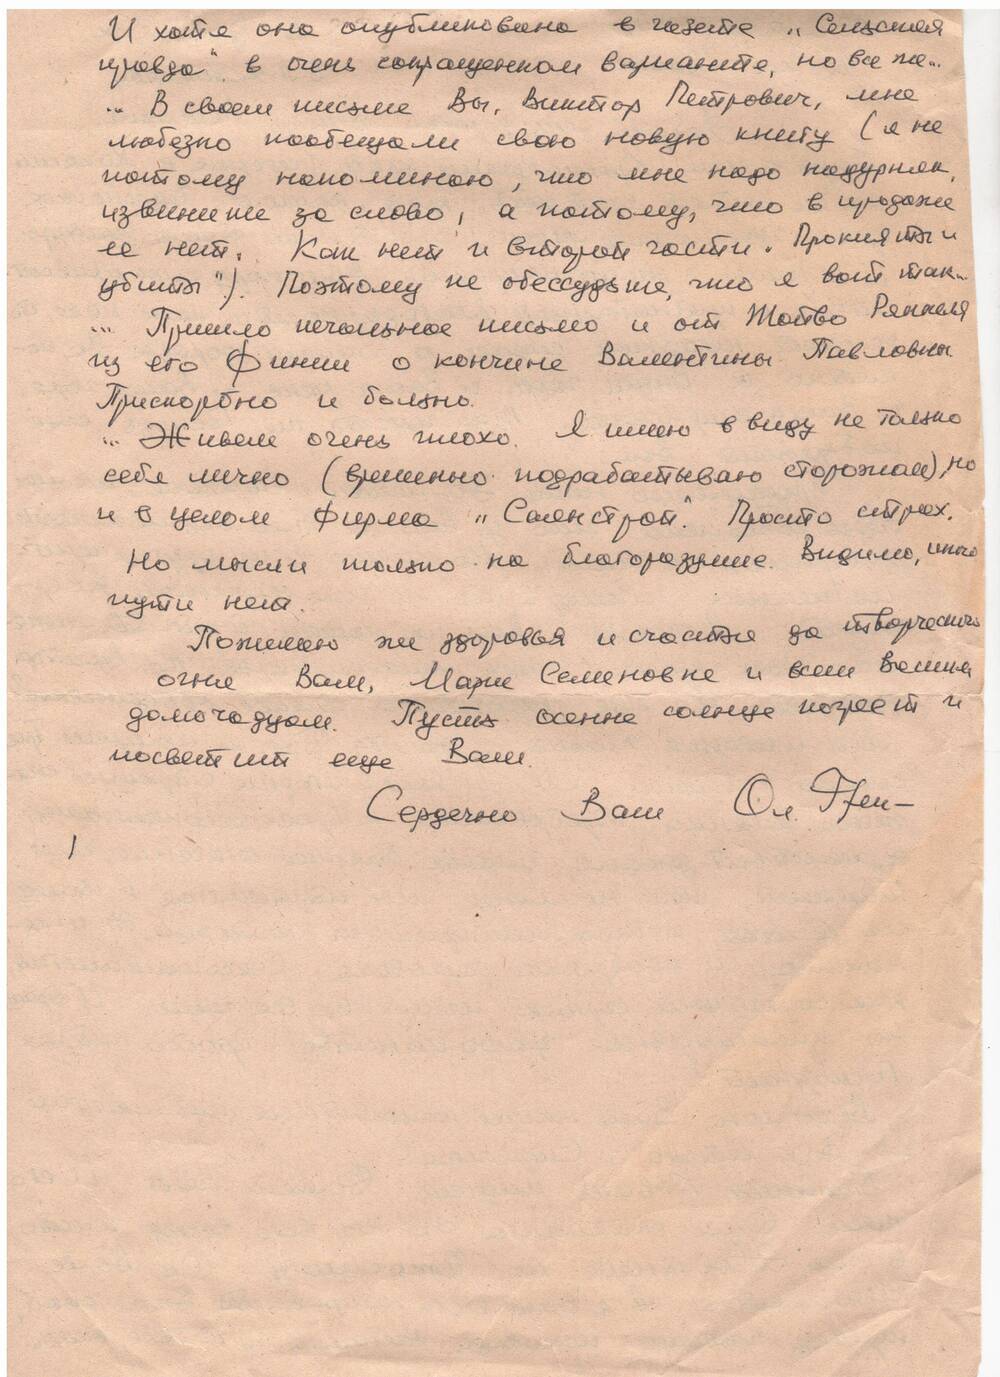 И хотя она опубликована в газете „Сельская
правда" в очень сокращенном варианте, но все же...
... В своем письме Вы, Виктор Петрович, мне
любезно пообещали свою новую книгу (я не
потому напоминаю, что мне надо надурняк,
извините за слово, а потому, что в продаже
ее нет. Как нет и второй части „Прокляты и
убиты"). Поэтому не обессудьте, что я вот так...
... Пришло печальное письмо и от
из его Финии о кончине Валентины Павловны.
Прискорбно и больно.
... Живем очень плохо. Я имею в виду не только
себя лично (временно подрабатываю сторожем), но
и в целом фирма „Саянстрой". Просто страх.
Но мысли только на благоразумие. Видимо, иного
пути нет.
Пожелаю же здоровья и счастья да творческого
огня Вам, Марие Семеновне и всем Вашим
домочадцам. Пусть осенне солнце погреет и
посветит еще Вам.
Сердечно Ваш Ол.